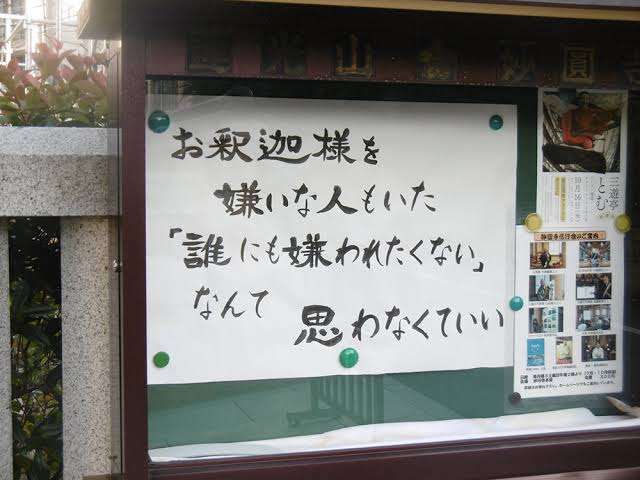 お釈迦様を
嫌いな人もいた
「誰にも嫌われたくない」
なんて
思わなくていい
三遊亭
とむ
10月16日